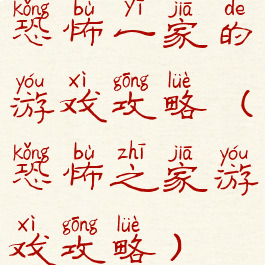 kǒng bù yī jiā de
恐怖一家的
yóu xì gōng lüè
游戏攻略（
kǒng bù zhī jiā yóu
恐怖之家游
xì gōng lüè
戏攻略）